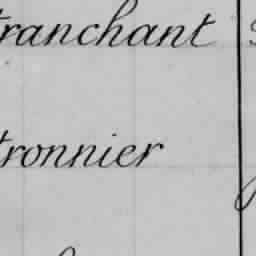 tranchant
tronnier